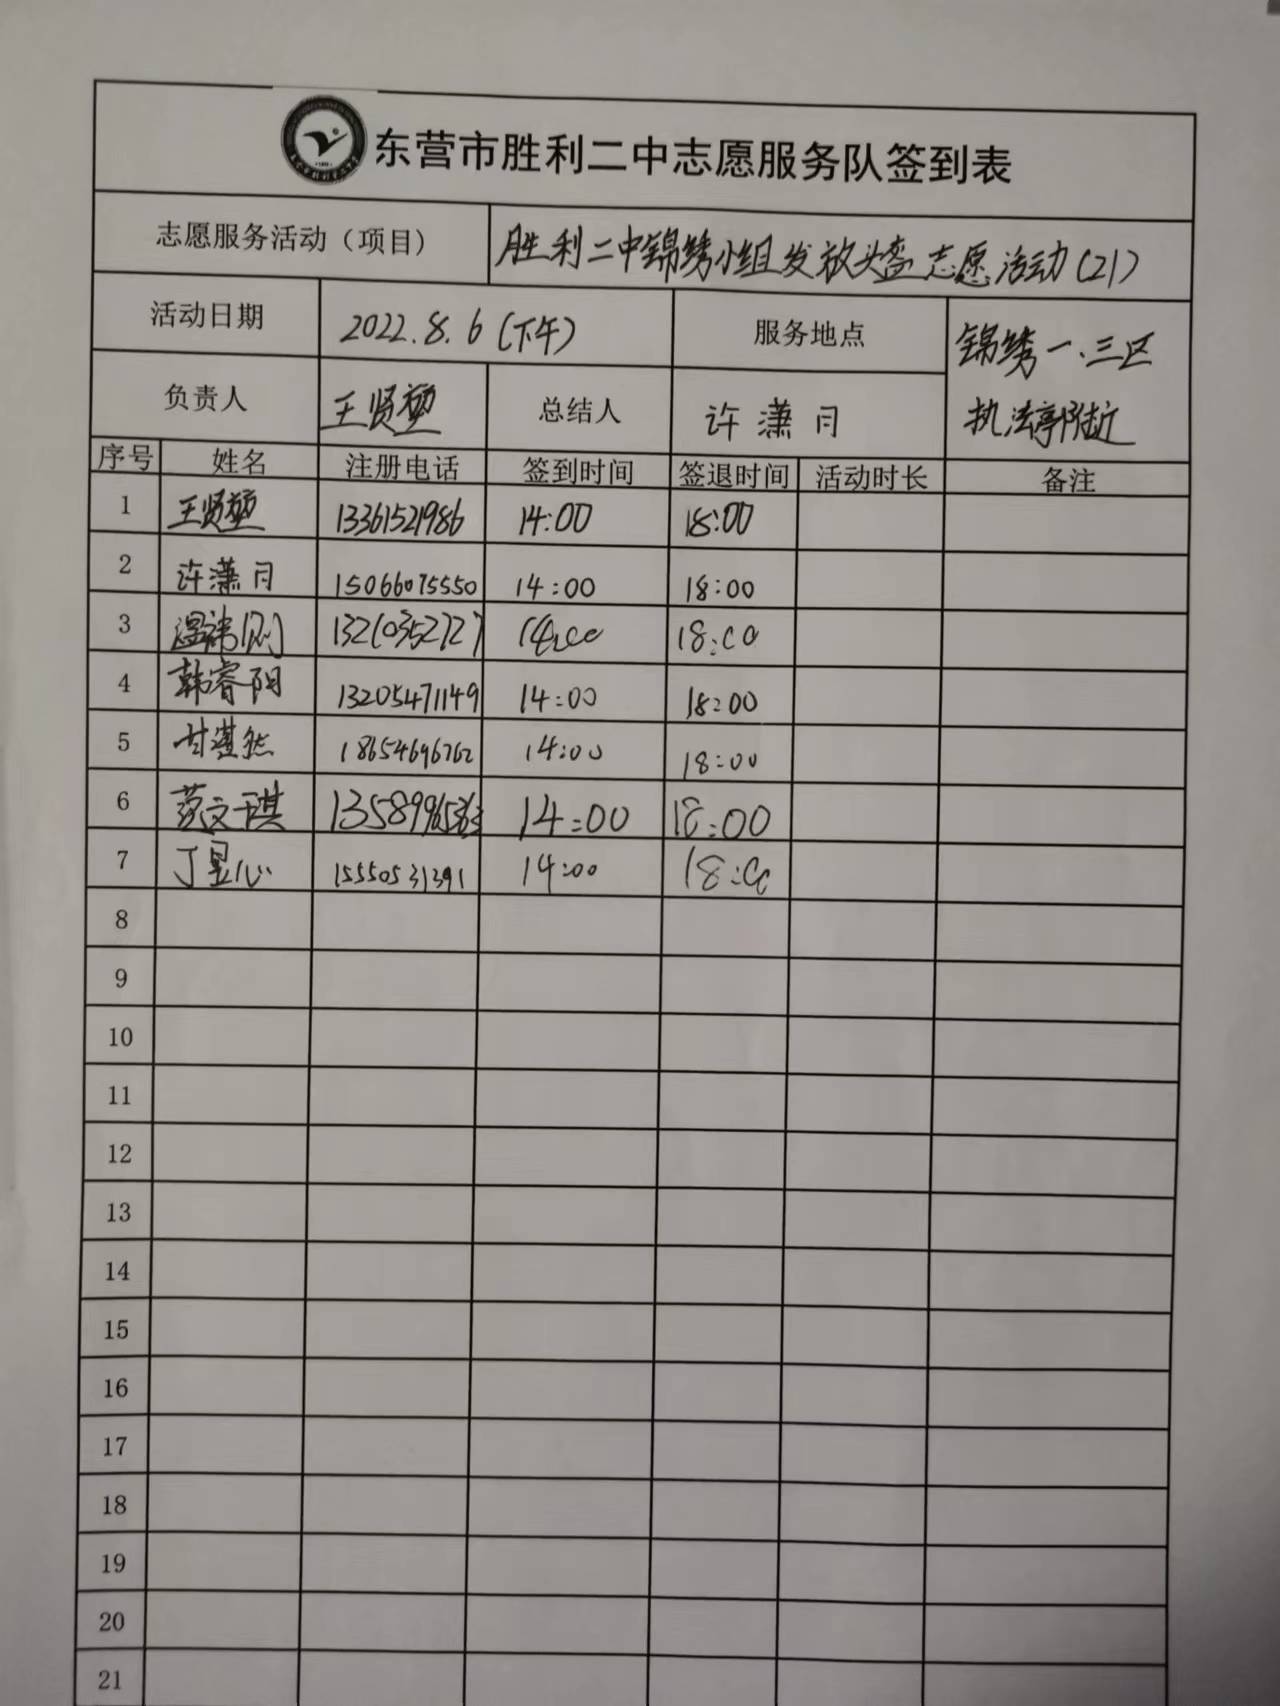 东营市胜利二中志愿服务队签到表
志愿服务活动（项目） 胜利二中锦绣小组发放头盔志愿活动(21)
活动日期 2022.8.6(下午) 服务地点 锦绣一.三区
负责人 王贤堃 总结人 许潇月 执法亭附近
序号 姓名 注册电话 签到时间 签退时间 活动时长 备注
1 王贤堃 13361521986 14:00 18:00
2 许潇月 15066075550 14:00 18:00
3 14:00 18:00
4 韩睿阳 13205471149 14:00 18:00
5 甘 18654696762 14:00 18:00
6 范文琪 14:00 18:00
7 丁昱心 15550531391 14:00 18:00
8
9
10
11
12
13
14
15
16
17
18
19
20
21